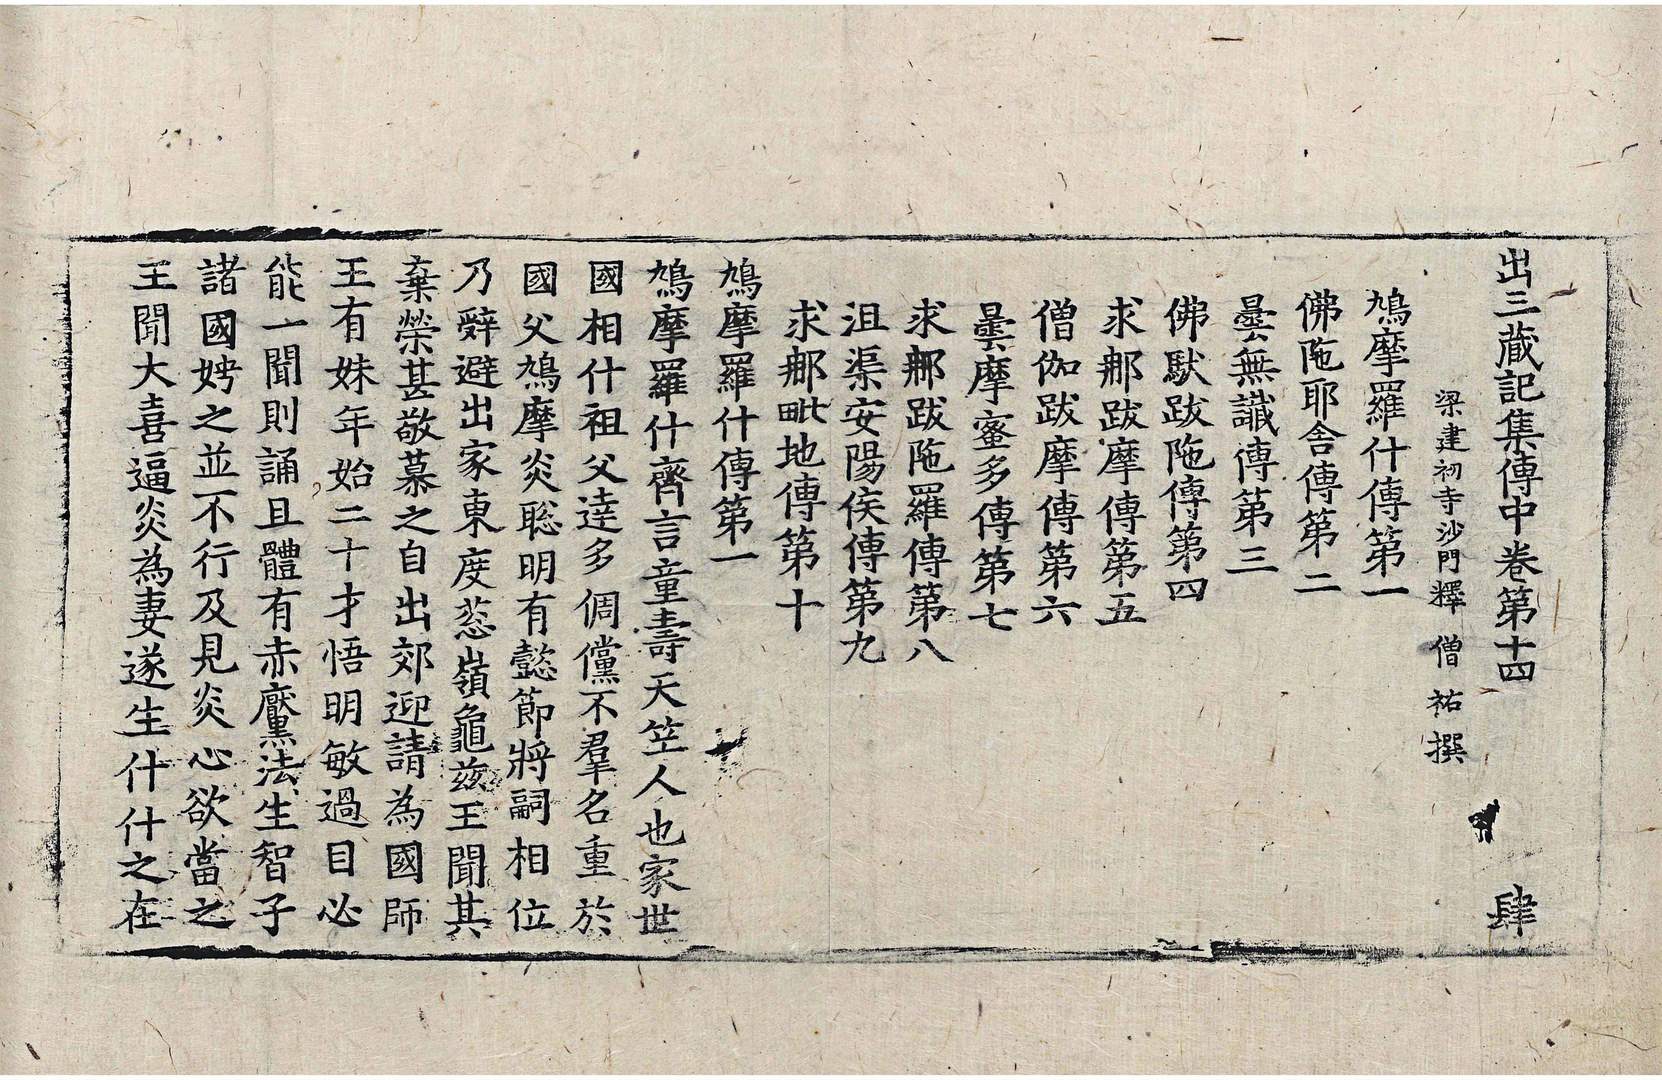 出三藏記集傳中卷第十四　肆
梁建初寺沙門釋僧祐撰
鳩摩羅什傳第一
佛陁耶舍傳第二
曇無讖傳第三
佛馱跋陁傳第四
求郍跋摩傳第五
僧伽跋摩傳第六
曇摩蜜多傳第七
求郍跋陁羅傳第八
沮渠安陽侯傳第九
求郍毗地傳第十
鳩摩羅什傳第一
鳩摩羅什齊言童壽天竺人也家世
國相什祖父達多倜儻不羣名重於
國父鳩摩炎聡明有懿節將嗣相位
乃辤避出家東度葱嶺龜茲王聞其
棄榮甚敬慕之自出郊迎請為國師
王有妹年始二十才悟明敏過目必
能一聞則誦且體有赤黶法生智子
諸國娉之並不行及見炎心欲當之
王聞大喜逼炎為妻遂生什什之在